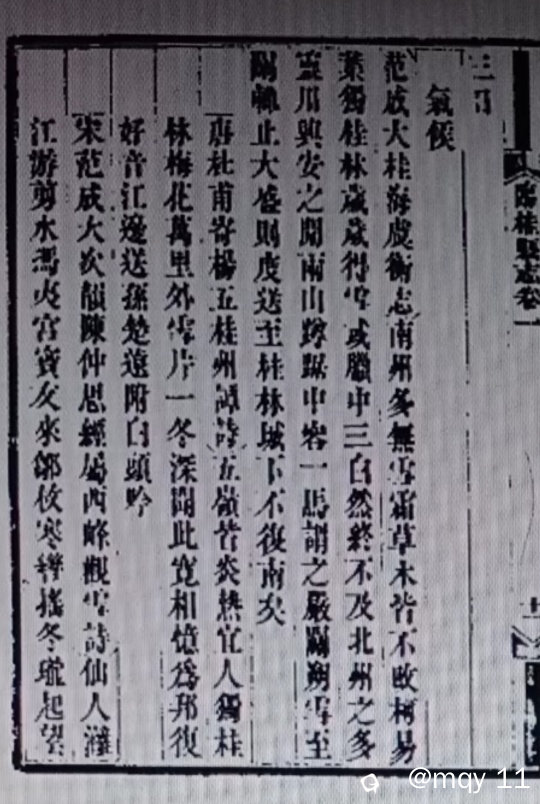 臨桂縣志卷一
氣候
范成大桂海虞衡志南州多無雪霜草木皆不改柯易
葉獨桂林歲歲得雪或臘中三白然終不及北州之多
靈川興安之間兩山蹲踞中容一馬謂之嚴關朔雪至
關輒止大盛則度送至桂林城下不復南矣
唐杜甫寄楊五桂州譚詩五嶺皆炎熱宜人獨桂
林梅花萬里外雪片一冬深聞此寬相憶為邦復
好音江邊送孫楚遠附白頭吟
宋范成大次韻陳仲思經屬西峰觀雪詩仙人瀰
江游剪水馮夷宮寶友來鄒枚寒轡搖冬瓏起望
@mqy 11